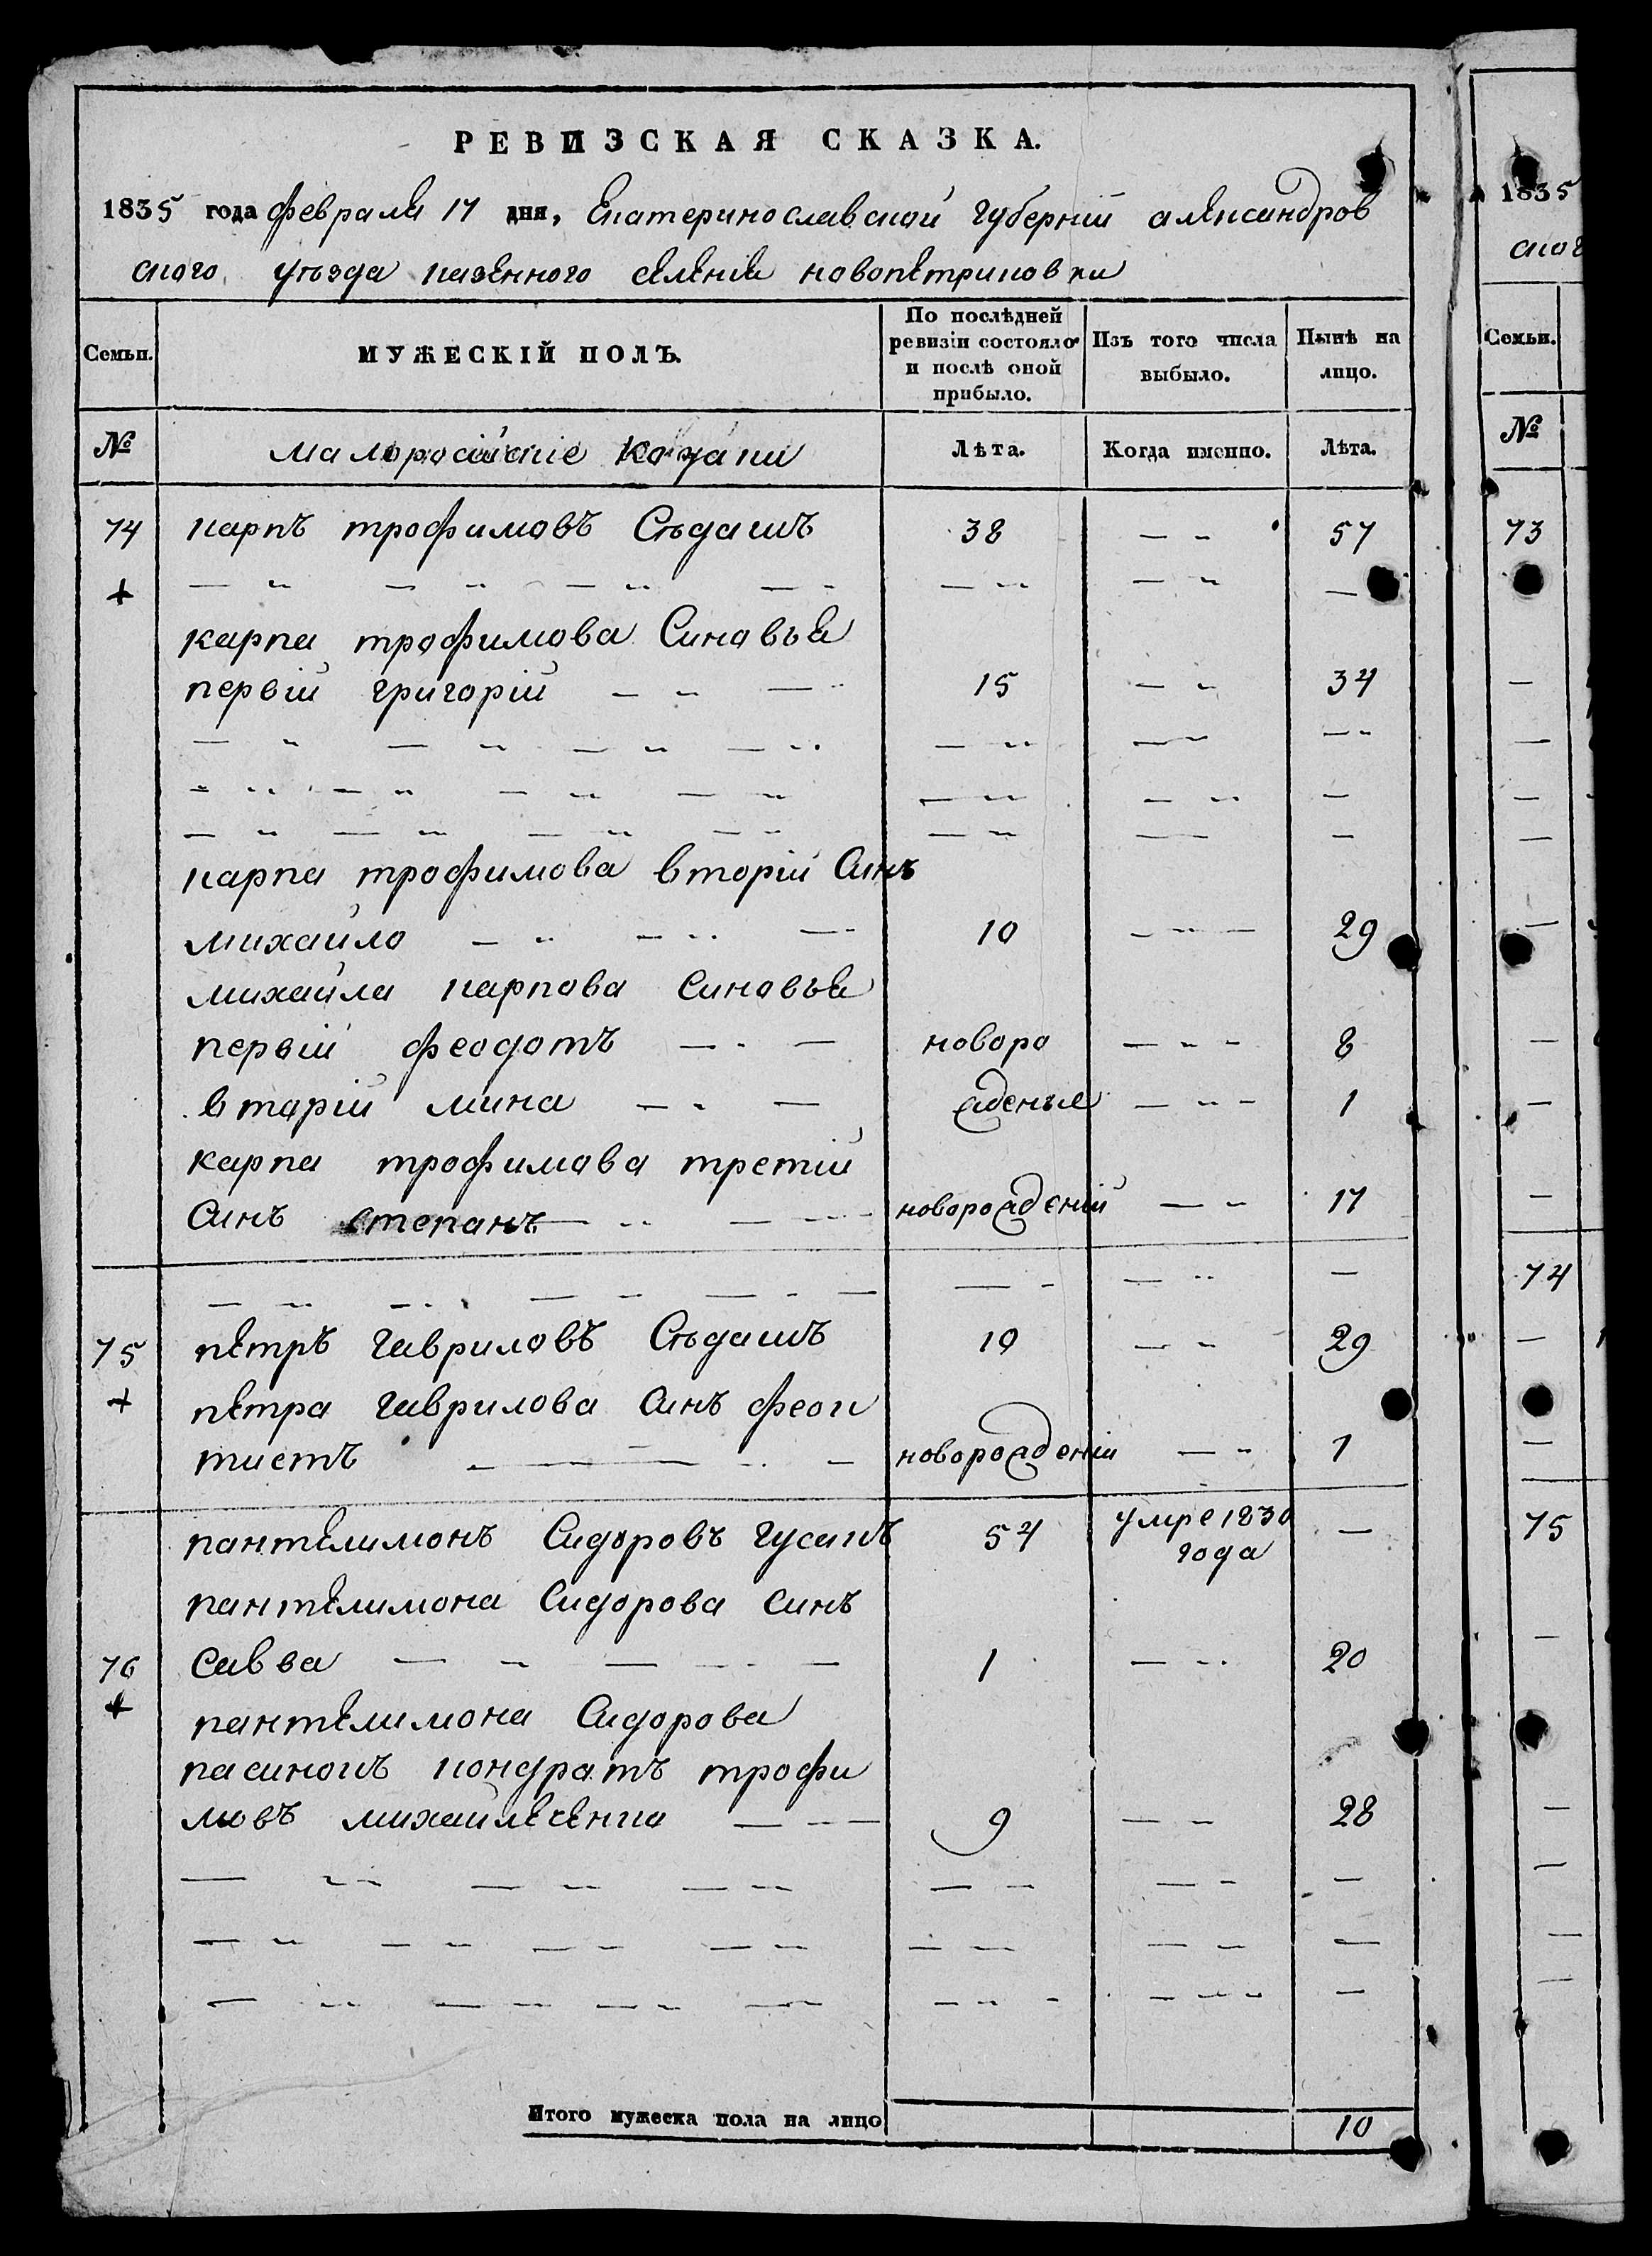 РЕВИЗСКАЯ СКАЗКА.
1835 года февраля 17 дня, Екатеринославской губерніи александров
ского уѣзда казенного селенія новопетриковки
Семьи. МУЖЕСКІЙ ПОЛЪ. По послѣдней ревизіи состояло и послѣ оной прибыло. Изъ того числа выбыло. Нынѣ на лицо.
№ малоросійскіе козаки Лѣта. Когда именно. Лѣта.
74 карпъ трофимовъ Сѣдашъ 38 57
+
карпа трофимова Синовья
первій григорій 15 34
карпа трофимова вторій Синъ
михайло 10 29
михайла карпова Синовья
первій феодотъ новоро 8
вторій мина жденые 1
карпа трофимова третій
Синъ степанъ новорожденій 17
75 петръ гавриловъ Сѣдашъ 10 29
+ петра гаврилова Синъ феок
тистъ новорожденій 1
пантелимонъ Сидоровъ гусакъ 54 умре 1830
года
пантелимона Сидорова Синъ
76 Савва 1 20
+ пантелимона Сидорова
пасинокъ кондратъ трофи
мовъ михайлеченка 9 28
Итого мужеска пола на лицо 10
1835
ског
Семьи.
№
73
74
75